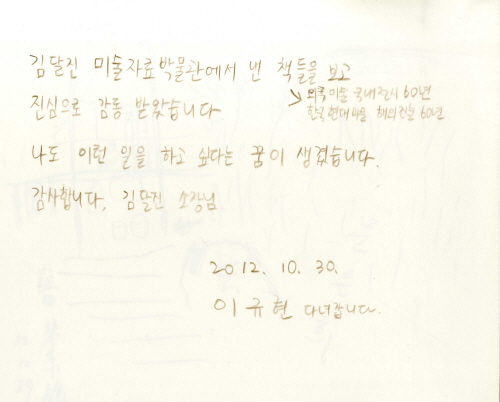 김달진 미술자료박물관에서 낸 책들을 보고
↘ 외국미술 국내전시 60년
한국현대미술 해외진출 60년
진심으로 감동 받았습니다
나도 이런 일을 하고 싶다는 꿈이 생겼습니다.
감사합니다. 김달진 소장님
2012. 10. 30.
이규현 다녀갑니다.